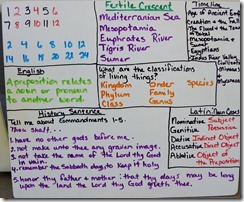 1 2 3 4 5 6
7 8 9 10 11 12
2 4 6 8 10 12
14 16 18 20 22 24
English
A preposition relates
a noun or pronoun
to another word.
Fertile Crescent
Mediterranean Sea
Mesopotamia
Euphrates River
Tigris River
Sumer
Timeline
Age of Ancient
Creation + the Fall
The Flood + the Tower
of Babel
Mesopotamia +
Sumer
Egyptians
Indus River Valley
What are the classifications
of living things?
Kingdom Order Species
Phylum Family
Class Genus
History Sentence
Tell me about Commandments 1-5.
Thou shalt...
1. have no other gods before me.
2. not make unto thee any graven image.
3. not take name of the Lord thy God
in vain.
4. remember the Sabbath day, to keep it holy
5. honor thy father + mother: that thy days may be long
upon the land the Lord thy God giveth thee.
Latin: Noun Cases
Nominative Subject
Genitive Possession
Dative Indirect Object
Accusative Direct Object
Ablative Object of
the Preposition